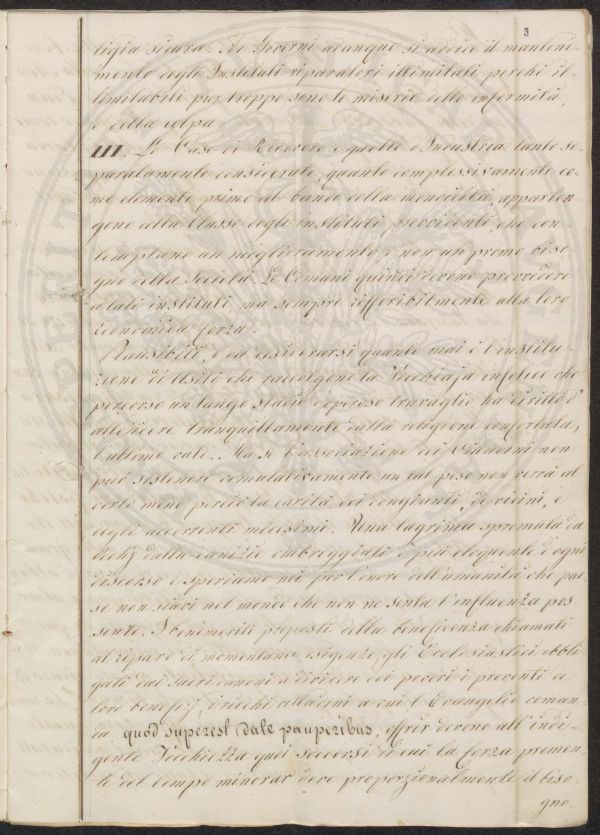 3
bigia sicura. Ai Governi adunque si addice il manteni-
mento degli Instituti riparatori illimitati, perchè il-
limitabili pur troppo sono le miserie delle infermità,
e della colpa.
III. Le Case di Ricovero e quelle d'Industria tanto se-
paratamente considerate, quanto complessivamente co-
me elemento primo al bando della mendicità, apparten-
gono alla Classe degli instituti provvidenti, che con-
templano un miglioramento, e non un primo biso-
gno della Società. Le Comuni quindi devono provvedere
a tale instituti ma sempre differibilmente alla loro
Economica forza.
Plausibile, e da desiderarsi quanto mai è l'institu-
zione di Asili che raccolgono la Vecchiaja infelice che
percorso un lungo stadio d'operoso travaglio ha diritto d'
attendere tranquillamente dalla religione confortata,
l'ultimo vale. Ma se l'associazione dei Cittadini non
può sostenere cumulativamente un tal peso non verrà al
certo meno perciò la carità dei congiunti, dei vicini, e
degli accorrenti medesimi. Una lagrima spremuta da
occhj dalla canizie ombreggiati è più eloquente d'ogni
discorso e speriamo noi per l'onore dell'umanità che pae-
se non siavi nel mondo che non ne senta l'influenza pos-
sente. I benemeriti preposti della beneficenza chiamati
al riparo di momentanee esigenze, gli Ecclesiastici obbli-
gati dai sacri canoni a dividere coi poveri i proventi de'
loro benefizj, i ricchi cittadini a cui l'Evangelio coman-
da quod superest date pauperibus, offrir devono all'indi-
gente Vecchiezza quei soccorsi di cui la forza premen-
te del tempo minorar deve proporzionalmente il biso-
gno.